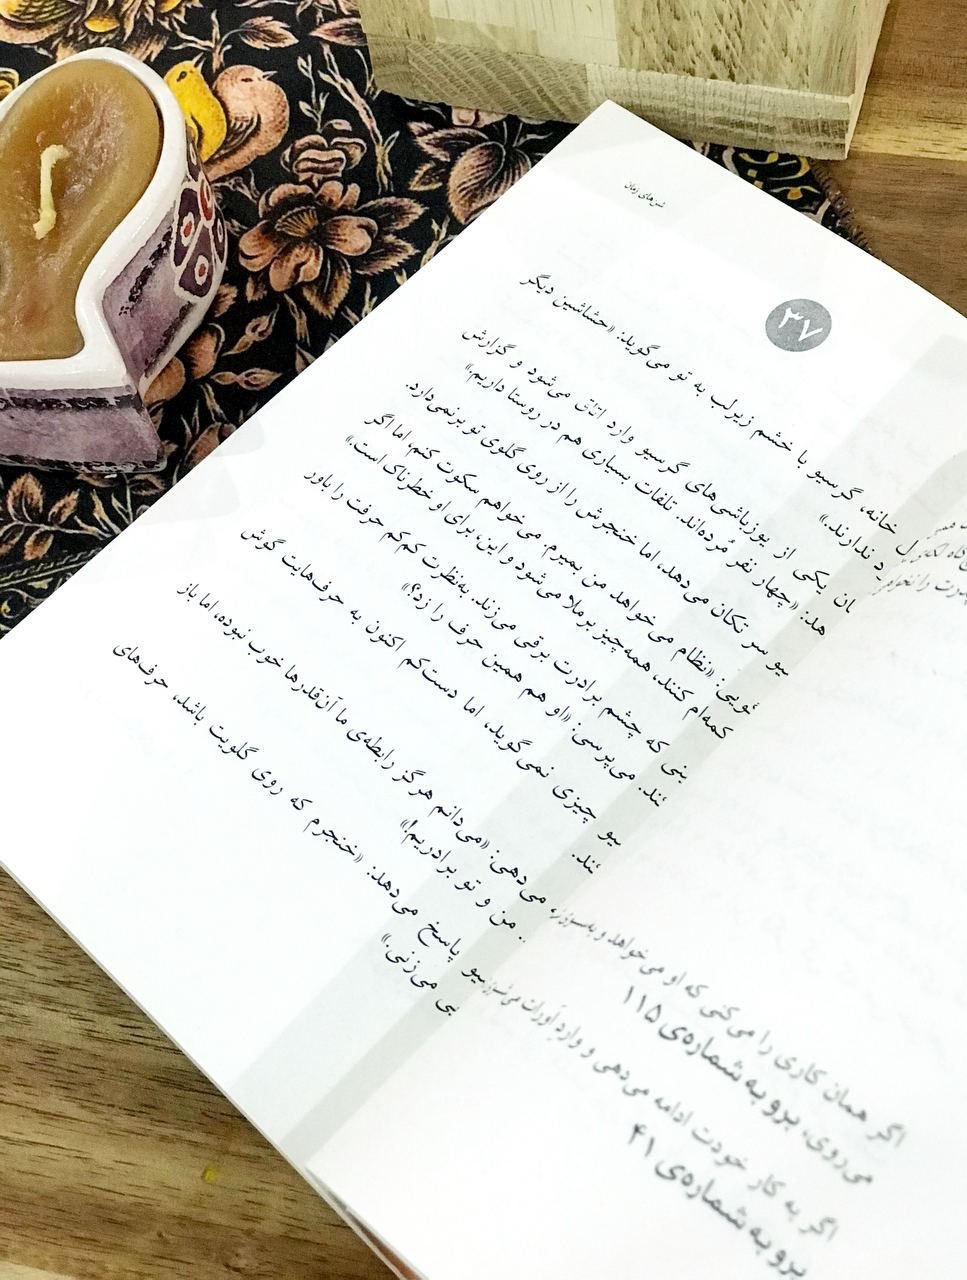 شن‌های زمان
۳۷
خانه، گرسیو با خشم زیرلب به تو می‌گوید: «حشاشین دیگر
ندارند.»
یکی از یوزباشی‌های گرسیو وارد اتاق می‌شود و گزارش
«چهار نفر مُرده‌اند. تلفات بسیاری هم در روستا داریم.»
سر تکان می‌دهد، اما خنجرش را از روی گلوی تو برنمی‌دارد.
«نظام می‌خواهد من بمیرم. می‌خواهم سکوت کنم، اما اگر
کنند، همه‌چیز برملا می‌شود و این، برای او خطرناک است.»
که چشم برادرت برقی می‌زند. به‌نظرت کم‌کم حرفت را باور
می‌پرسی: «او هم همین حرف را زد؟»
چیزی نمی‌گوید، اما دست‌کم اکنون به حرف‌هایت گوش
می‌دهی: «می‌دانم هرگز رابطه‌ی ما آن‌قدرها خوب نبوده، اما باز
من و تو برادریم!»
پاسخ می‌دهد: «خنجرم که روی گلویت باشد، حرف‌های
می‌زنی.»
اگر همان کاری را می‌کنی که او می‌خواهد و
می‌روی، برو به شماره‌ی ۱۱۵
اگر به کار خودت ادامه می‌دهی و وارد
برو به شماره‌ی ۴۱